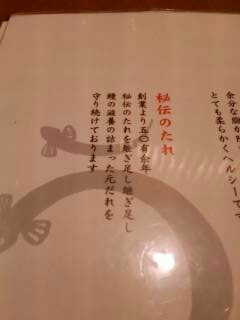 余分な脂が
ヘルシーで
とても柔らかく
秘伝のたれ
創業より五〇有余年
秘伝のたれを継ぎ足し継ぎ足し
鰻の滋養の詰まった元だれを
守り続けております